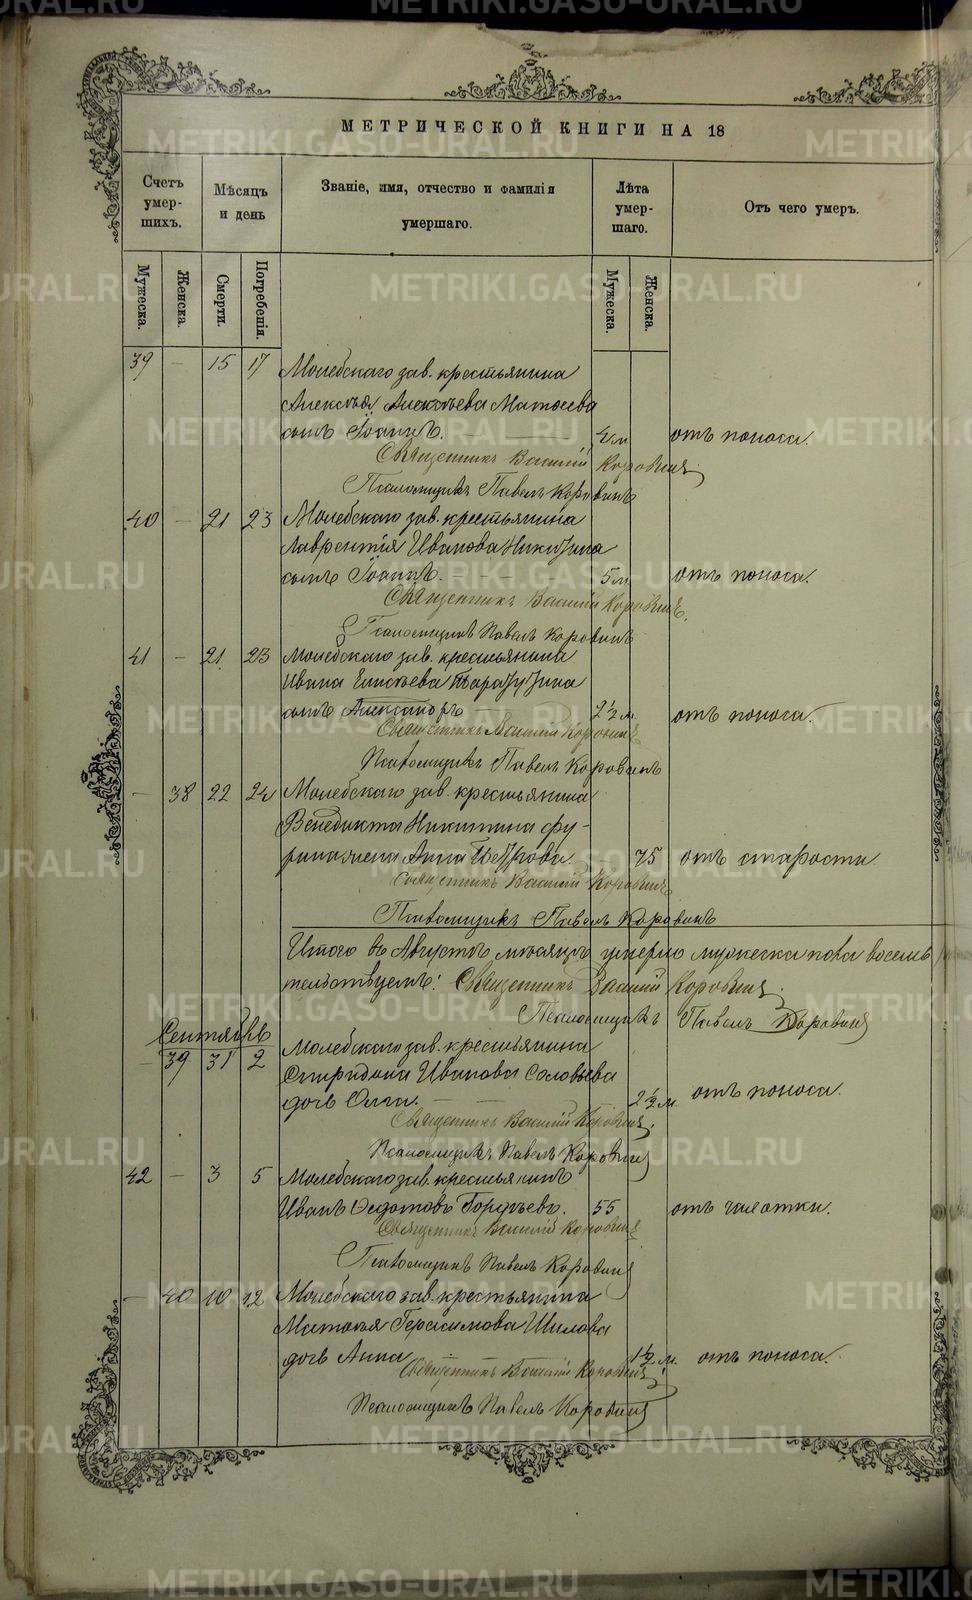 МЕТРИЧЕСКОЙ КНИГИ НА 18
Счетъ умер-шихъ.
Мѣсяцъ и день
Званіе, имя, отчество и фамилія умершаго.
Лѣта умер-шаго.
Отъ чего умеръ.
Мужеска.
Женска.
Смерти.
Погребенія.
Мужеска.
Женска.
39 - 15 17 Молебскаго зав. крестьянина
Алексѣя Алексѣева Матвеева
сынъ Іоаннъ. 4 м отъ поноса.
Священникъ Василій Коровинъ
Псаломщикъ Павелъ Коровинъ
40 - 21 23 Молебскаго зав. крестьянина
Лаврентія Иванова Никитина
сынъ Іоаннъ. 5 м отъ поноса.
Священникъ Василій Коровинъ.
Псаломщикъ Павелъ Коровинъ
41 - 21 23 Молебскаго зав. крестьянина
Ивана Елисѣева
сынъ Александръ 2 1/2 м. отъ поноса.
Священникъ Василій Коровинъ
Псаломщикъ Павелъ Коровинъ
- 38 22 24 Молебскаго зав. крестьянина
Венедикта Никитина
жена Анна 75 отъ старости
Священникъ Василій Коровинъ
Псаломщикъ Павелъ Коровинъ
Итого въ Августѣ мѣсяцѣ умерло мужеска пола восемь
тельствуемъ: Священникъ Василій Коровинъ
Псаломщикъ Павелъ Коровинъ
Сентябрь
- 39 31 2 Молебскаго зав. крестьянина
Спиридона Иванова Соловьева
дочь Олга. 2 1/2 м. отъ поноса.
Священникъ Василій Коровинъ.
Псаломщикъ Павелъ Коровинъ
42 - 3 5 Молебскаго зав. крестьянинъ
Иванъ Федотовъ Гордѣевъ. 55 отъ чахотки.
Священникъ Василій Коровинъ
Псаломщикъ Павелъ Коровинъ
- 40 10 12 Молебскаго зав. крестьянина
Матвѣя Герасимова Шилова
дочь Анна 1 1/2 м. отъ поноса.
Священникъ Василій Коровинъ
Псаломщикъ Павелъ Коровинъ
METRIKI.GASO-URAL.RU